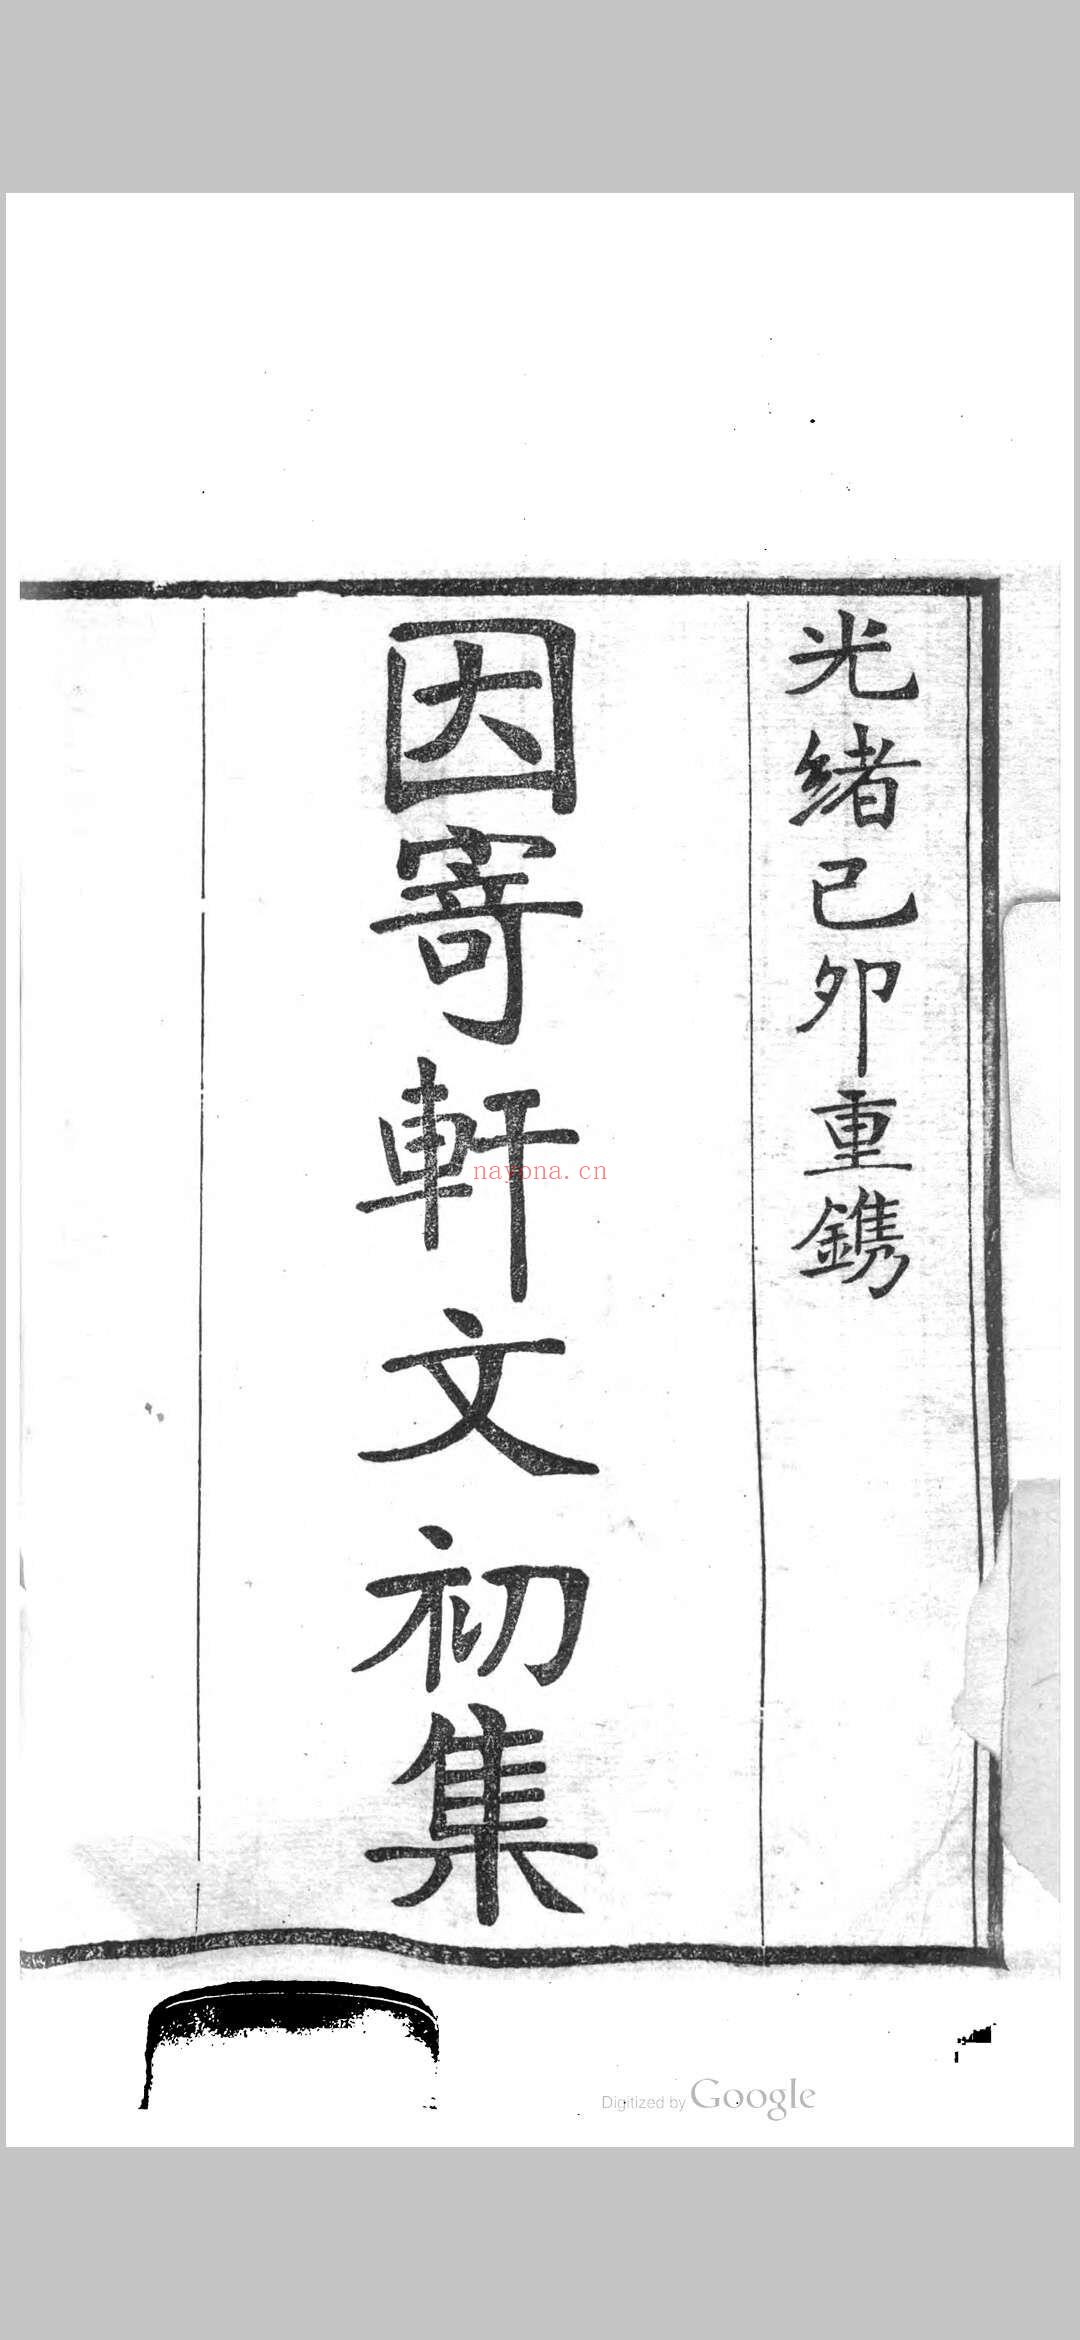 光緒己卯重鐫
因寄軒文初集
nayona.cn
Digitized by Google